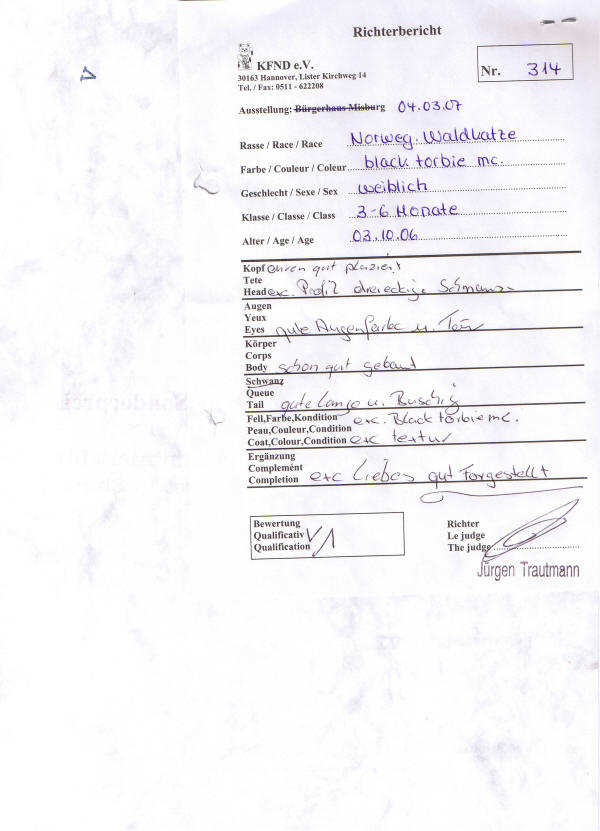 Richterbericht
KFND e.V.
30163 Hannover, Lister Kirchweg 14
Tel. / Fax: 0511 - 622208
Nr. 314
Ausstellung: Bürgerhaus Misburg 04.03.07
Rasse / Race / Race Norweg. Waldkatze
Farbe / Couleur / Coleur black torbie mc.
Geschlecht / Sexe / Sex weiblich
Klasse / Classe / Class 3-6 Monate
Alter / Age / Age 03.10.06
Kopf ohren gut plaziert
Tete
Head exc. Profil dreieckige
Augen
Yeux
Eyes gute Augenfarbe u.
Körper
Corps
Body schon gut gebaut
Schwanz
Queue
Tail gute lange u. Buschig
Fell,Farbe,Kondition exc. Black torbie mc.
Peau,Couleur,Condition
Coat,Colour,Condition exc textur
Ergänzung
Complemént
Completion exc Liebes gut Forgestellt
Bewertung
Qualificativ V1
Qualification
Richter
Le judge
The judge
Jürgen Trautmann